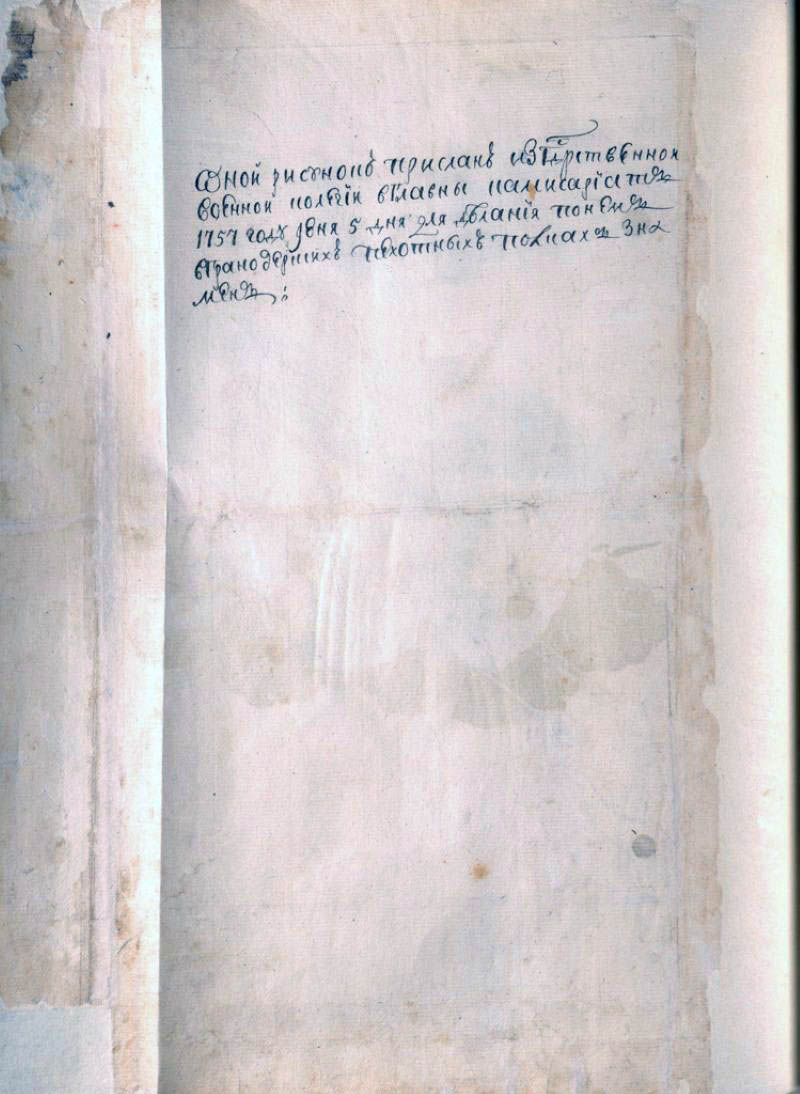 Оной рисунокъ присланъ изГдрственной
военной колегiи вглавны камисарiатъ
1757 году июня 5 дня для дѣланiя по немъ
вгранодерскихъ пехотныхъ полкахъ зна
менъ: